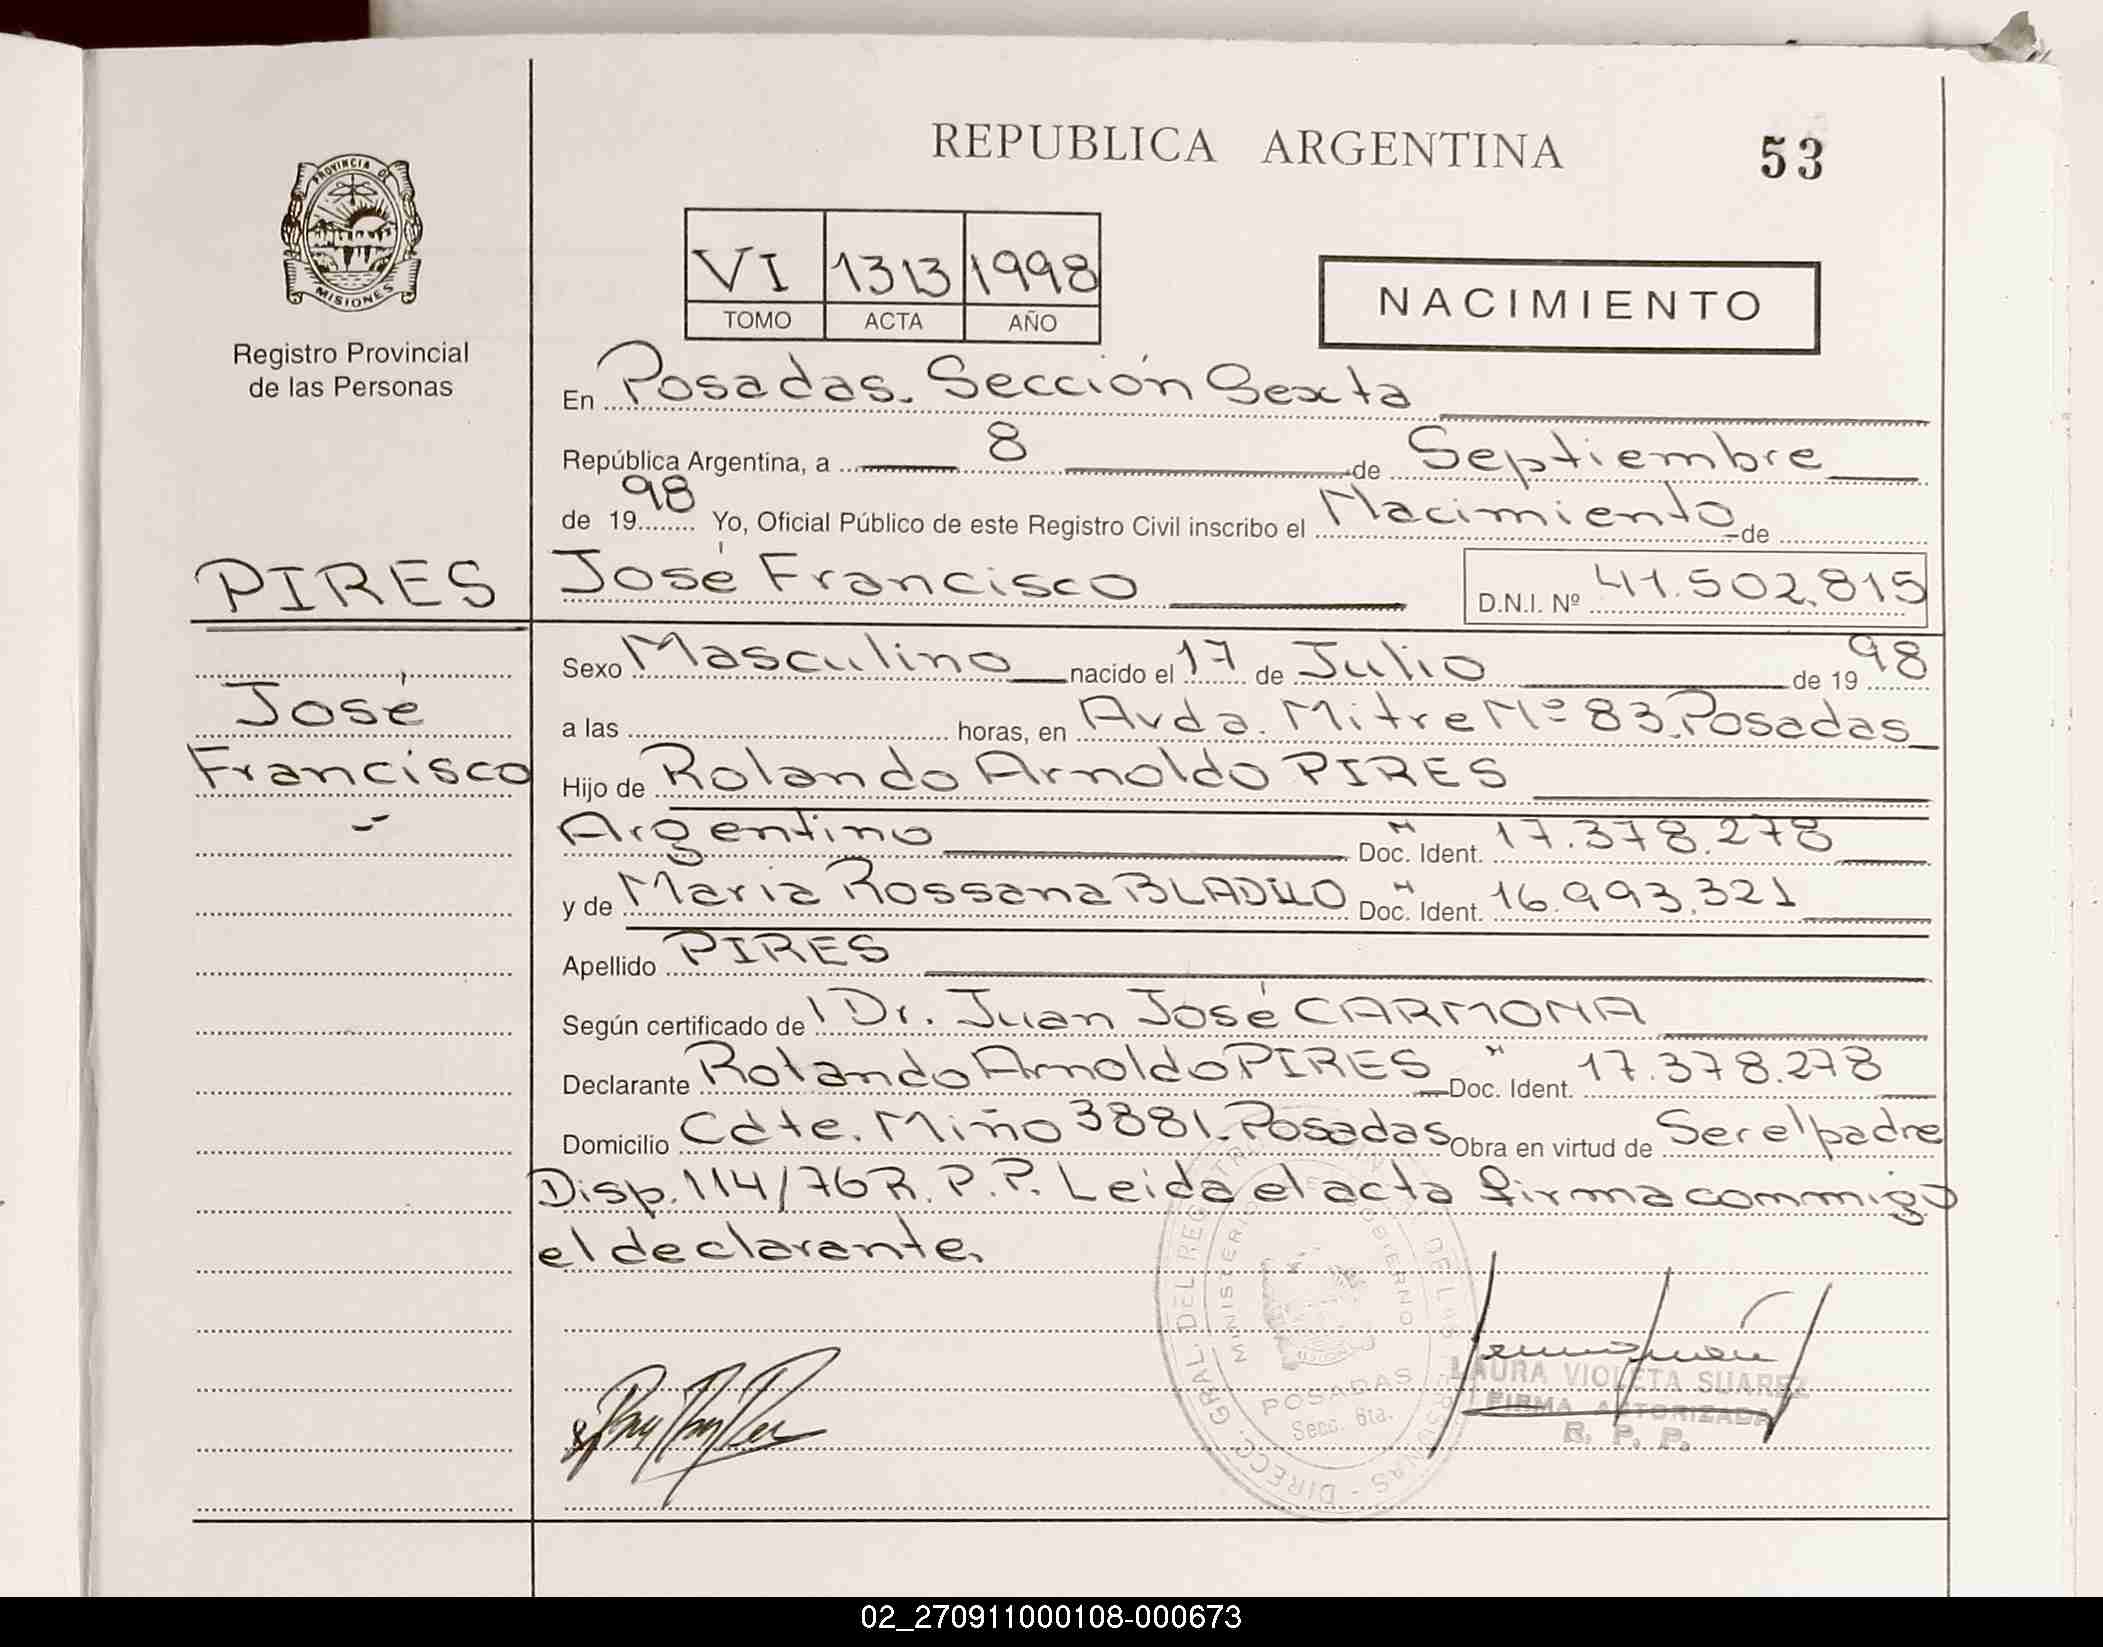 REPUBLICA ARGENTINA
53
PROVINCIA DE
MISIONES
Registro Provincial
de las Personas
VI 1313 1998
TOMO ACTA AÑO
NACIMIENTO
En Posadas. Sección Sexta
República Argentina, a 8 de Septiembre
de 1998 Yo, Oficial Público de este Registro Civil inscribo el Nacimiento de
PIRES
José Francisco
José Francisco D.N.I. Nº 41.502.815
Sexo Masculino nacido el 17 de Julio de 1998
a las horas, en Avda. Mitre Nº 83. Posadas
Hijo de Rolando Arnoldo PIRES
Argentino Doc. Ident. 17.378.278
y de Maria Rossana Doc. Ident. 16.993.321
Apellido PIRES
Según certificado de Dr. Juan José CARMONA
Declarante Rolando Arnoldo PIRES Doc. Ident. 17.378.278
Domicilio Cdte. Miño 3881. Posadas Obra en virtud de Ser el padre
Disp. 114/76 R.P.P. Leida el acta firma conmigo
el declarante.
DIRECC. GRAL. DEL REGISTRO PROVINCIAL DE LAS PERSONAS
MINISTERIO DE GOBIERNO
POSADAS
Secc. 6ta.
LAURA VIOLETA SUAREZ
FIRMA AUTORIZADA
R. P. P.
02_270911000108-000673